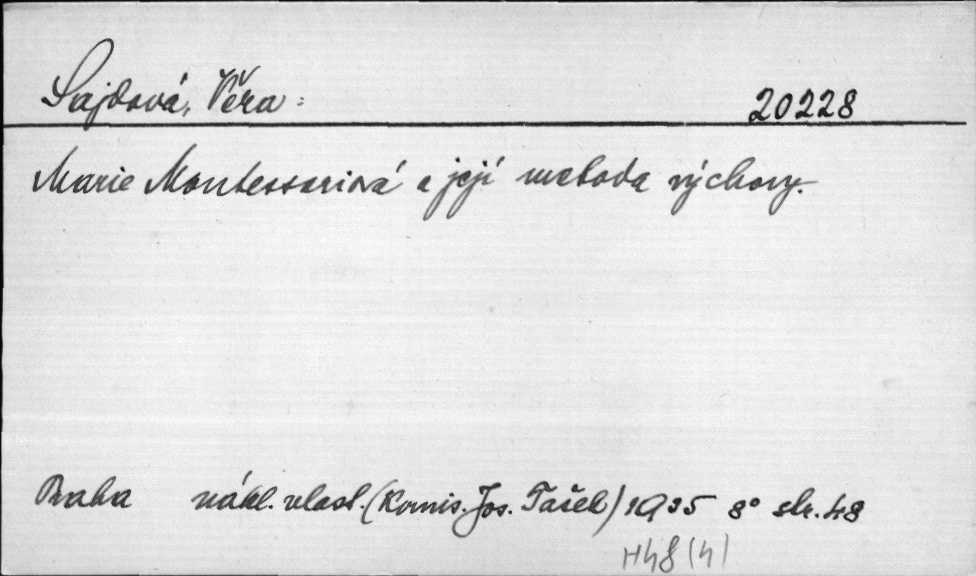 Sajdová, Věra: 20228
Marie Montessoriová a její metoda výchovy.
Praha nákl. vlast. (Komis. Jos. Tašek) 1935 8° str. 48
H48(4)